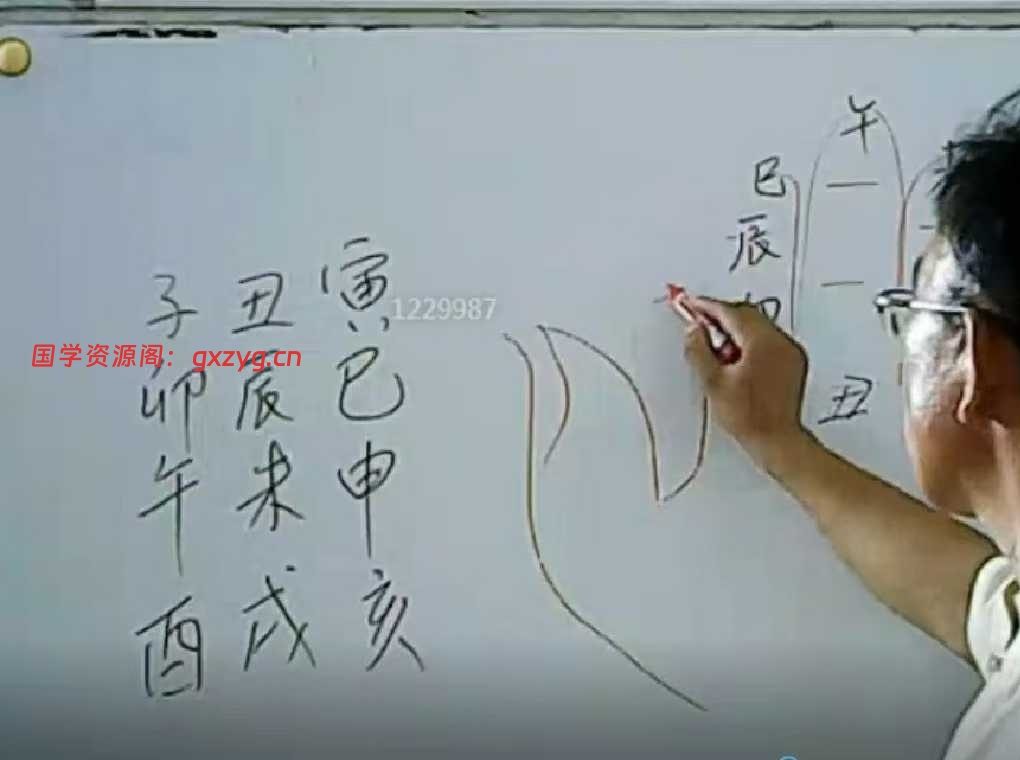 午
巳
辰
丑
子 丑 寅
1229987
国学资源阁：gxzyg.cn
卯 辰 巳
午 未 申
酉 戌 亥